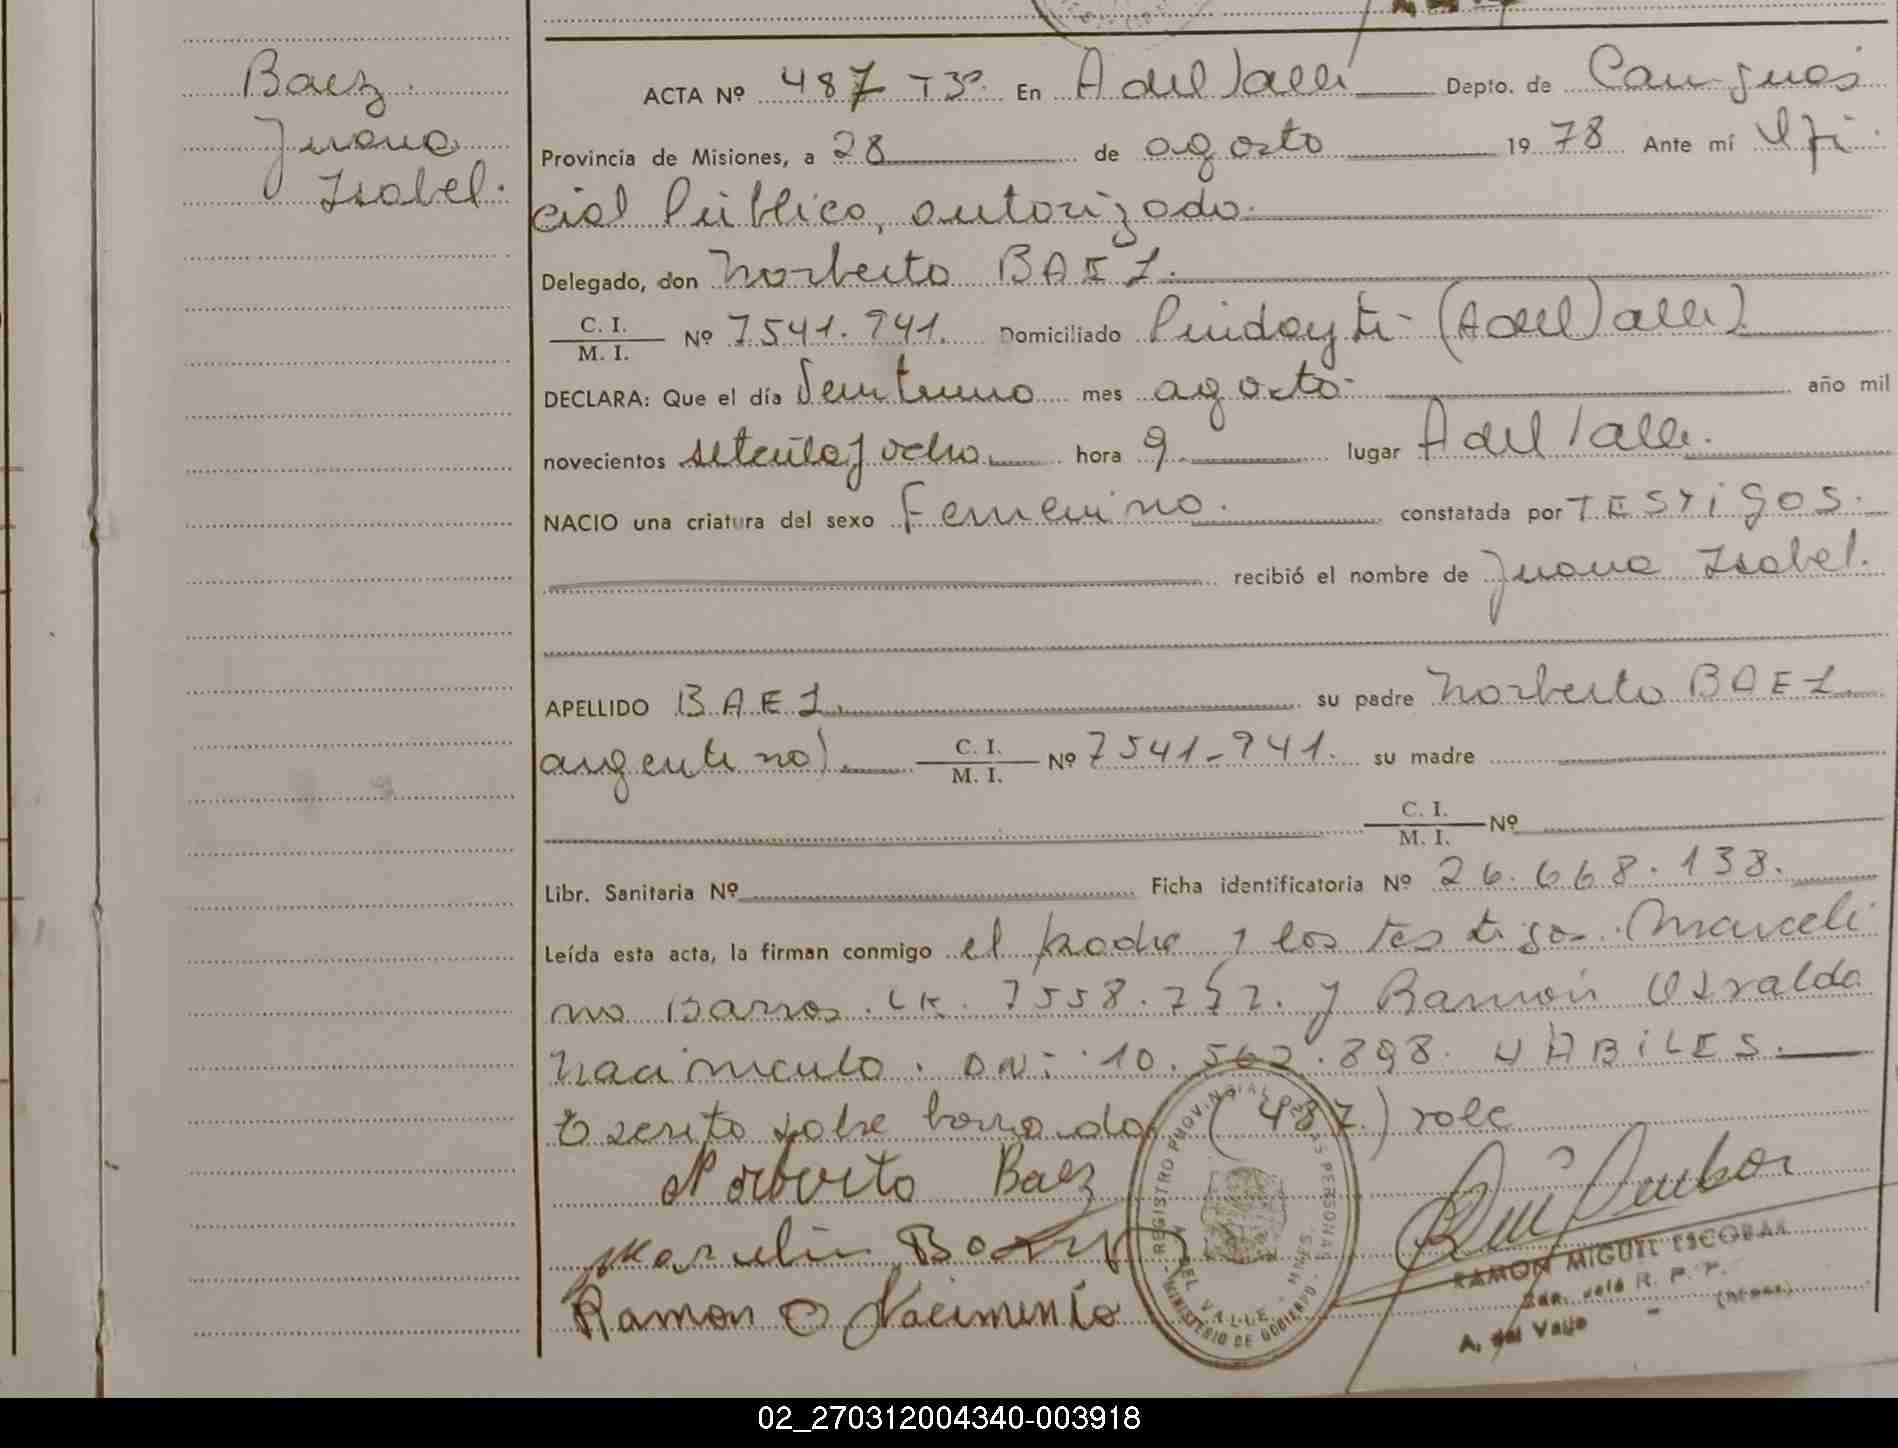 Baez
Juana
Isabel.
ACTA Nº 487 T3º. En A del Valle Depto. de Cainguas
Provincia de Misiones, a 28 de agosto 1978 Ante mí Ofi
cial Público, autorizado.
Delegado, don Norberto BAEZ.
C. I.
M. I. Nº 7541.941. Domiciliado Pindayti (A del Valle)
DECLARA: Que el día Veintiuno mes agosto año mil
novecientos setenta y ocho hora 9 lugar A del Valle.
NACIO una criatura del sexo Femenino. constatada por TESTIGOS.
recibió el nombre de Juana Isabel.
APELLIDO BAEZ. su padre Norberto BAEZ
argentino). C. I.
M. I. Nº 7541-941. su madre
C. I.
M. I. Nº
Libr. Sanitaria Nº Ficha identificatoria Nº 26.668.138.
Leída esta acta, la firman conmigo el padre y los testigos. Marceli
no Barros. 7558. y Ramón Osvaldo
Nacimiento. DNi. 10.562.898. HABILES.
Escrito sobre borrado (487) vale
Norberto Baez
Marcelin
Ramon O Nacimento
REGISTRO PROVINCIAL DE LAS PERSONAS
DEL VALLE - MNES.
MINISTERIO DE GOBIERNO
RAMON MIGUEL ESCOBAR
R. P. P.
A. del Valle (Mnes.)
02_270312004340-003918